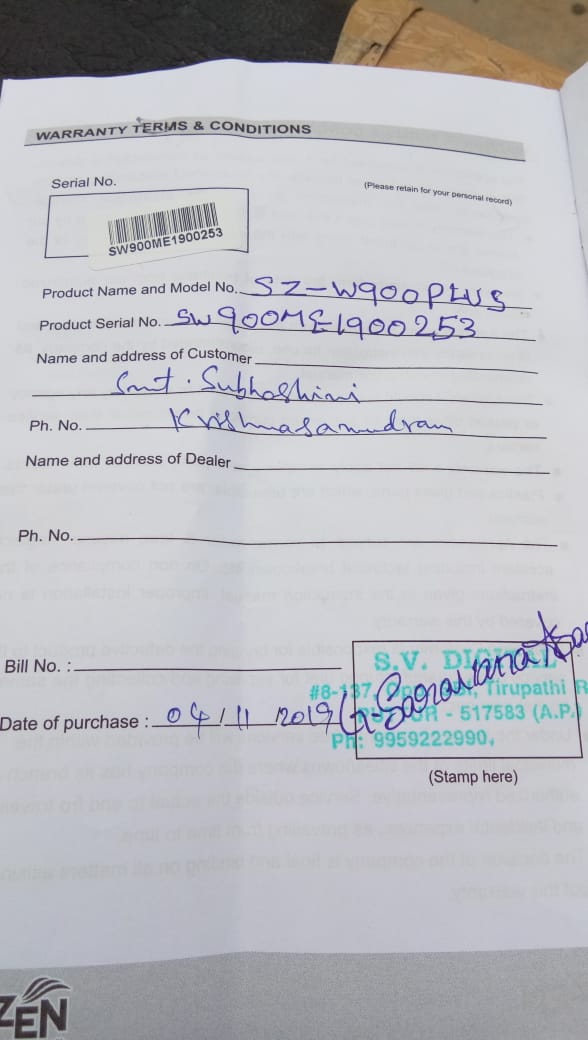 WARRANTY TERMS & CONDITIONS
Serial No.
(Please retain for your personal record)
SW900ME1900253
Product Name and Model No. SZ-W900PLUS
Product Serial No. SW900ME1900253
Name and address of Customer
Smt. Subhashini
Ph. No. Krishnasamudram
Name and address of Dealer
Ph. No.
Bill No. :
S.V. DIGITAL
#8-137, Tirupathi R
Date of purchase : 04/11/2019
- 517583 (A.P.)
Ph: 9959222990.
(Stamp here)
ZEN